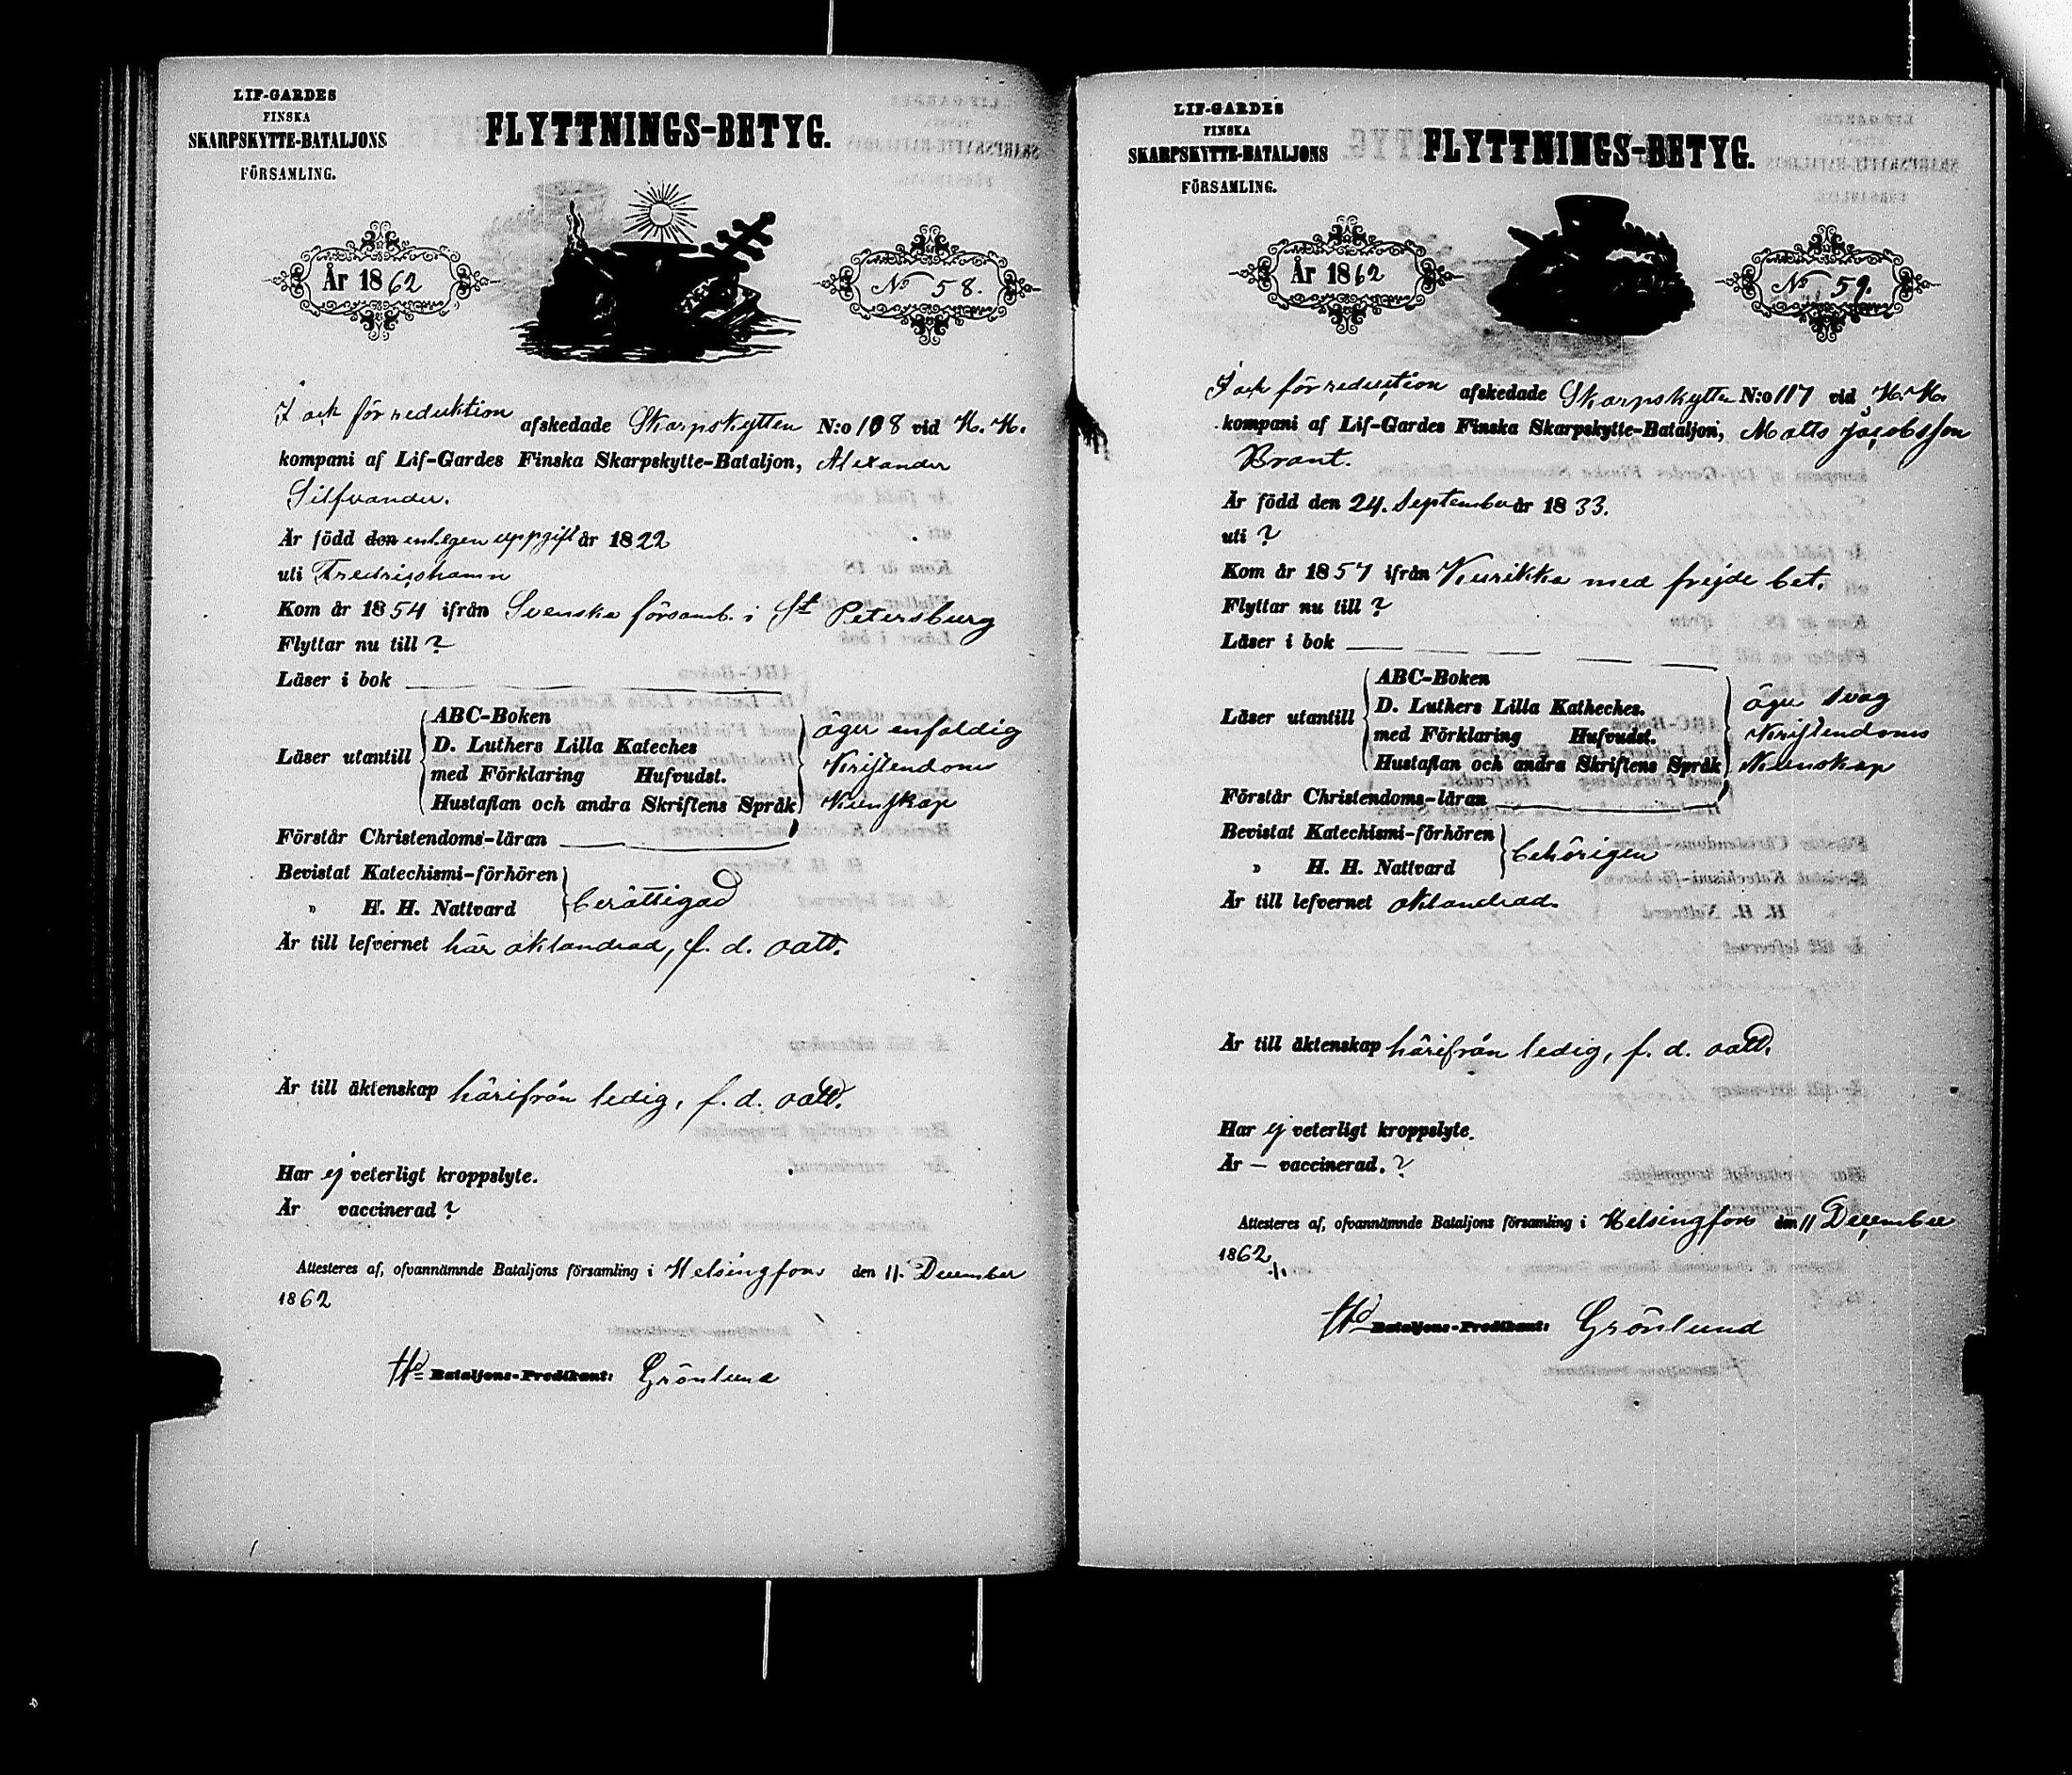 LIF-GARDES
FINSKA
SKARPSKYTTE-BATALJONS
FÖRSAMLING.
FLYTTNINGS-BETYG.
År 1862
No 58.
I och för reduktion afskedade Skarpskytten N:o 108 vid H. K.
kompani af Lif-Gardes Finska Skarpskytte-Bataljon, Alexander
Silfvander.
Är född den enl. egen uppgift år 1822
uti Fredrikshamn
Kom år 1854 ifrån Svenska församl. i St Petersburg
Flyttar nu till ?
Läser i bok
Läser utantill
ABC-Boken
D. Luthers Lilla Kateches
med Förklaring Hufvudst.
Hustaflan och andra Skriftens Språk
äger enfaldig
Kristendoms
Kunskap
Förstår Christendoms-läran
Bevistat Katechismi-förhören
" H. H. Nattvard
berättigad
Är till lefvernet här oklandrad, f. d. oatt.
Är till äktenskap härifrån ledig, f. d. oatt.
Har ej veterligt kroppslyte.
Är vaccinerad ?
Attesteres af, ofvannämnde Bataljons församling i Helsingfors den 11. December
1862
Bataljons-Predikant: Grönlund
LIF-GARDES
FINSKA
SKARPSKYTTE-BATALJONS
FÖRSAMLING.
FLYTTNINGS-BETYG.
År 1862
No 59.
I och för reduction afskedade Skarpskytten N:o 117 vid H. K.
kompani af Lif-Gardes Finska Skarpskytte-Bataljon, Matts Jacobsson
Brant.
Är född den 24. September år 1833.
uti ?
Kom år 1857 ifrån Kurikka med frejde bet.
Flyttar nu till ?
Läser i bok
Läser utantill
ABC-Boken
D. Luthers Lilla Katheches.
med Förklaring Hufvudst.
Hustaflan och andra Skriftens Språk
äger svag
Kristendoms
Kunskap
Förstår Christendoms-läran
Bevistat Katechismi-förhören
" H. H. Nattvard
behörigen
Är till lefvernet oklandrad.
Är till äktenskap härifrån ledig, f. d. oatt.
Har ej veterligt kroppslyte.
Är – vaccinerad. ?
Attesteres af, ofvannämnde Bataljons församling i Helsingfors den 11 December
1862
Bataljons-Predikant: Grönlund